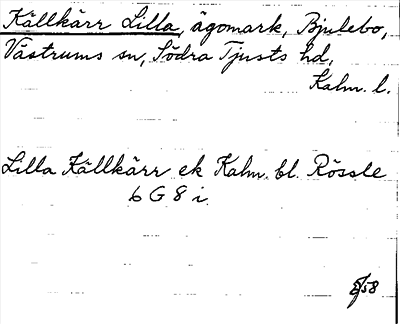 Källkärr Lilla, ägomark, Bjulebo,
Västrums sn, Södra Tjusts hd,
Kalm. l.
Lilla Källkärr ek Kalm. bl. Rössle
6 G 8 i.
58